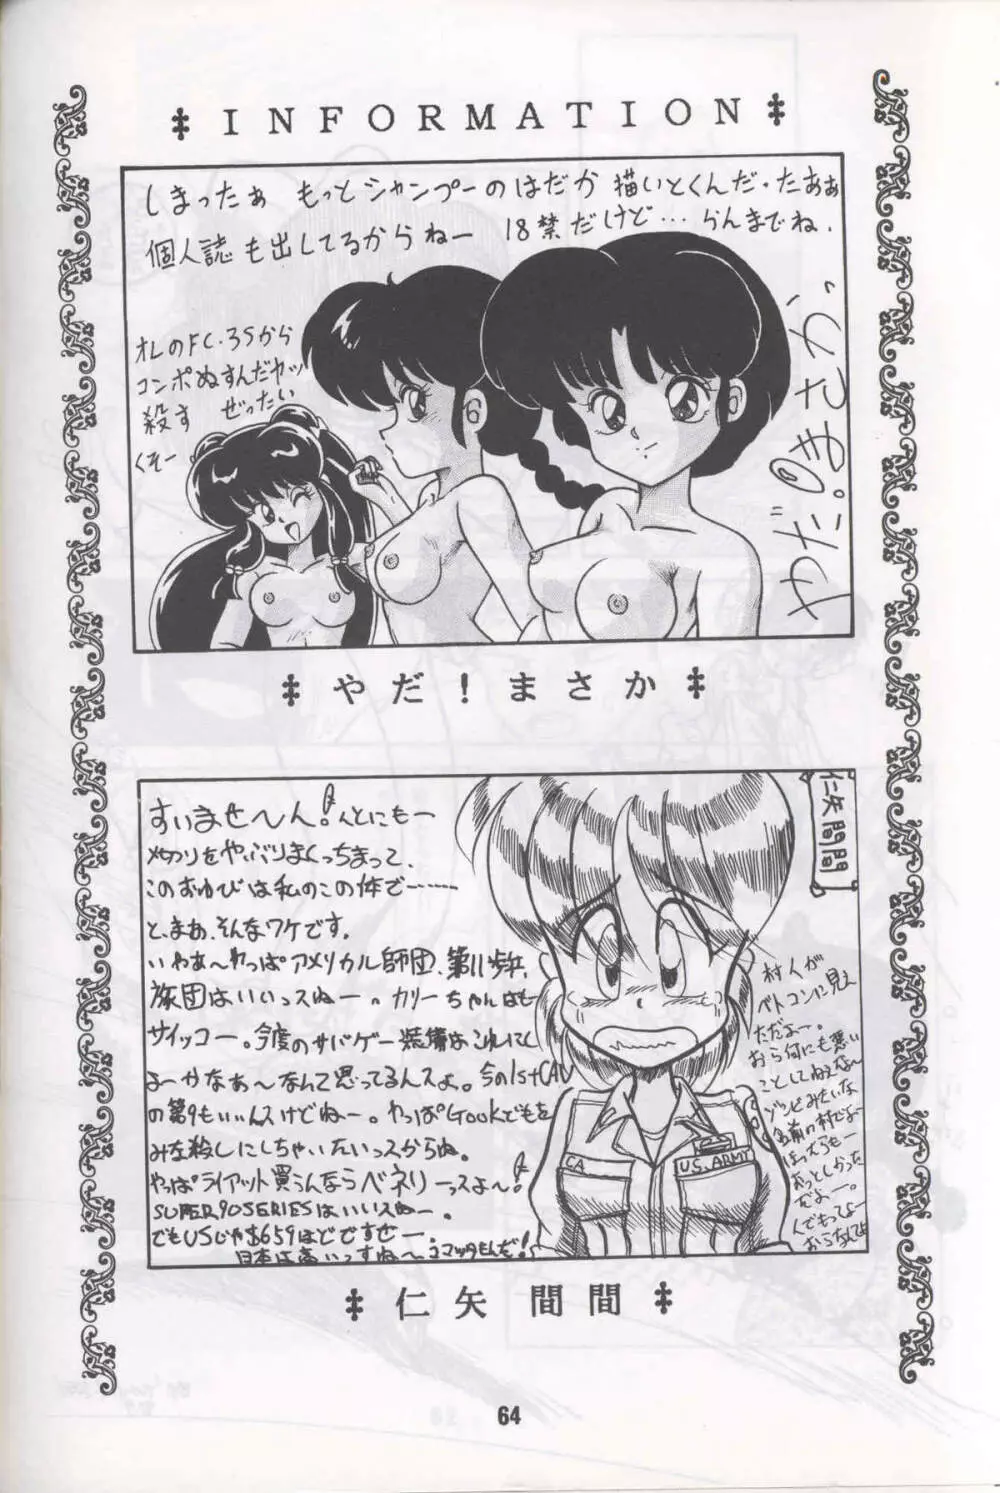 INFORMATION
しまったぁ もっとシャンプーのはだか 描いとくんだ・たあぁ
個人誌も出してるからねー 18禁だけど… らんまでね.
オレのFC・3Sから
コンポぬすんだヤツ
殺す ぜったい
くそー
やだ！まさか
仁矢間間
すいませ〜ん!んとにもー
〆切りをやぶりまくっちまって、
このおわびは私のこの体で……
と、まあ、そんなワケです。
いやぁ〜やっぱアメリカル師団、第11歩兵
旅団はいいっスねー。カリーちゃんはも
サイッコー。今度のサバゲー装備はこれにし
よーかなぁ〜なんて思ってるんスよ。今の1stCAV
の第9もいいんスけどねー。やっぱGookどもを
みな殺しにしちゃいたいっスからね。
やっぱライアット買うんならベネリーっスよ〜!
SUPER90SERIESはいいスねー。
でもUSじゃ$659ほどですぜー.
日本は高いっすね〜
村人が
ベトコンに見え
ただよー。
おら何にも悪い
ことしてねえな〜
ゾンビみたいな
名前の村でよー
おっとしかった
だよー。
んでもってよー
CA
U.S. ARMY
仁矢 間間
64